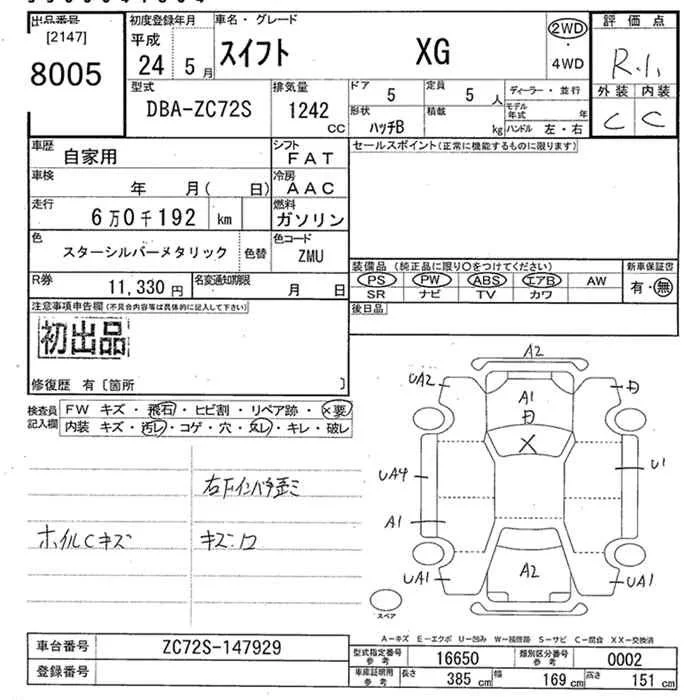 出品番号 初度登録年月 車名・グレード 評価点
[2147] 平成 スイフト XG 2WD ・ 4WD R.1,
8005 24 5月
外装 内装
C C
型式 排気量 ドア 5 定員 5人 ディーラー・並行
DBA-ZC72S 1242 cc 形状 ハッチB 積載 kg モデル年式 年
ハンドル 左・右
車歴 自家用 シフト FAT セールスポイント(正常に機能するものに限ります)
車検 年 月( 日) 冷房 AAC
走行 6万0千192 km 燃料 ガソリン
色 スターシルバーメタリック 色替 色コード ZMU
装備品(純正品に限り○をつけてください) 新車保証書
PS PW ABS エアB AW 有・無
SR ナビ TV カワ
R券 11,330円 名変通知期限 月 日
後日品
注意事項申告欄(不具合内容等は具体的に記入して下さい)
初出品
修復歴 有〔箇所 〕
検査員記入欄 FW キズ・飛石・ヒビ割・リペア跡・×要
内装 キズ・汚レ・コゲ・穴・スレ・キレ・破レ
ホイルCキズ キズ・ワ
A2
UA2
A1
UA4 X U1
A1
UA1 A2 UA1
スペア
A-キズ E-エクボ U-凹み W-補修跡 S-サビ C-腐食 XX-交換済
車台番号 ZC72S-147929 型式指定番号 参考 16650 類別区分番号 参考 0002
登録番号 車庫証明用 参考 長さ 385cm 幅 169cm 高さ 151cm